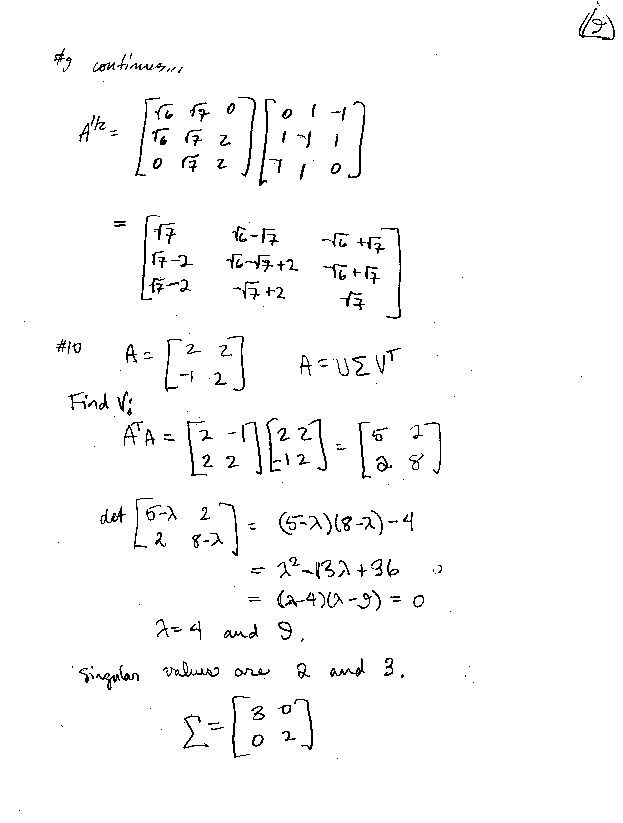 (9)
#9 continues...
A^{1/2} = [√6 √7 0; √6 √7 2; 0 √7 2] [0 1 -1; 1 -1 1; -1 1 0]
= [√7 √6-√7 -√6+√7; √7-2 √6-√7+2 -√6+√7; √7-2 -√7+2 √7]
#10 A = [2 2; -1 2] A = UΣV^T
Find V:
A^T A = [2 -1; 2 2] [2 2; -1 2] = [5 2; 2 8]
det [5-λ 2; 2 8-λ] = (5-λ)(8-λ)-4
= λ²-13λ+36
= (λ-4)(λ-9) = 0
λ=4 and 9.
Singular values are 2 and 3.
Σ = [3 0; 0 2]